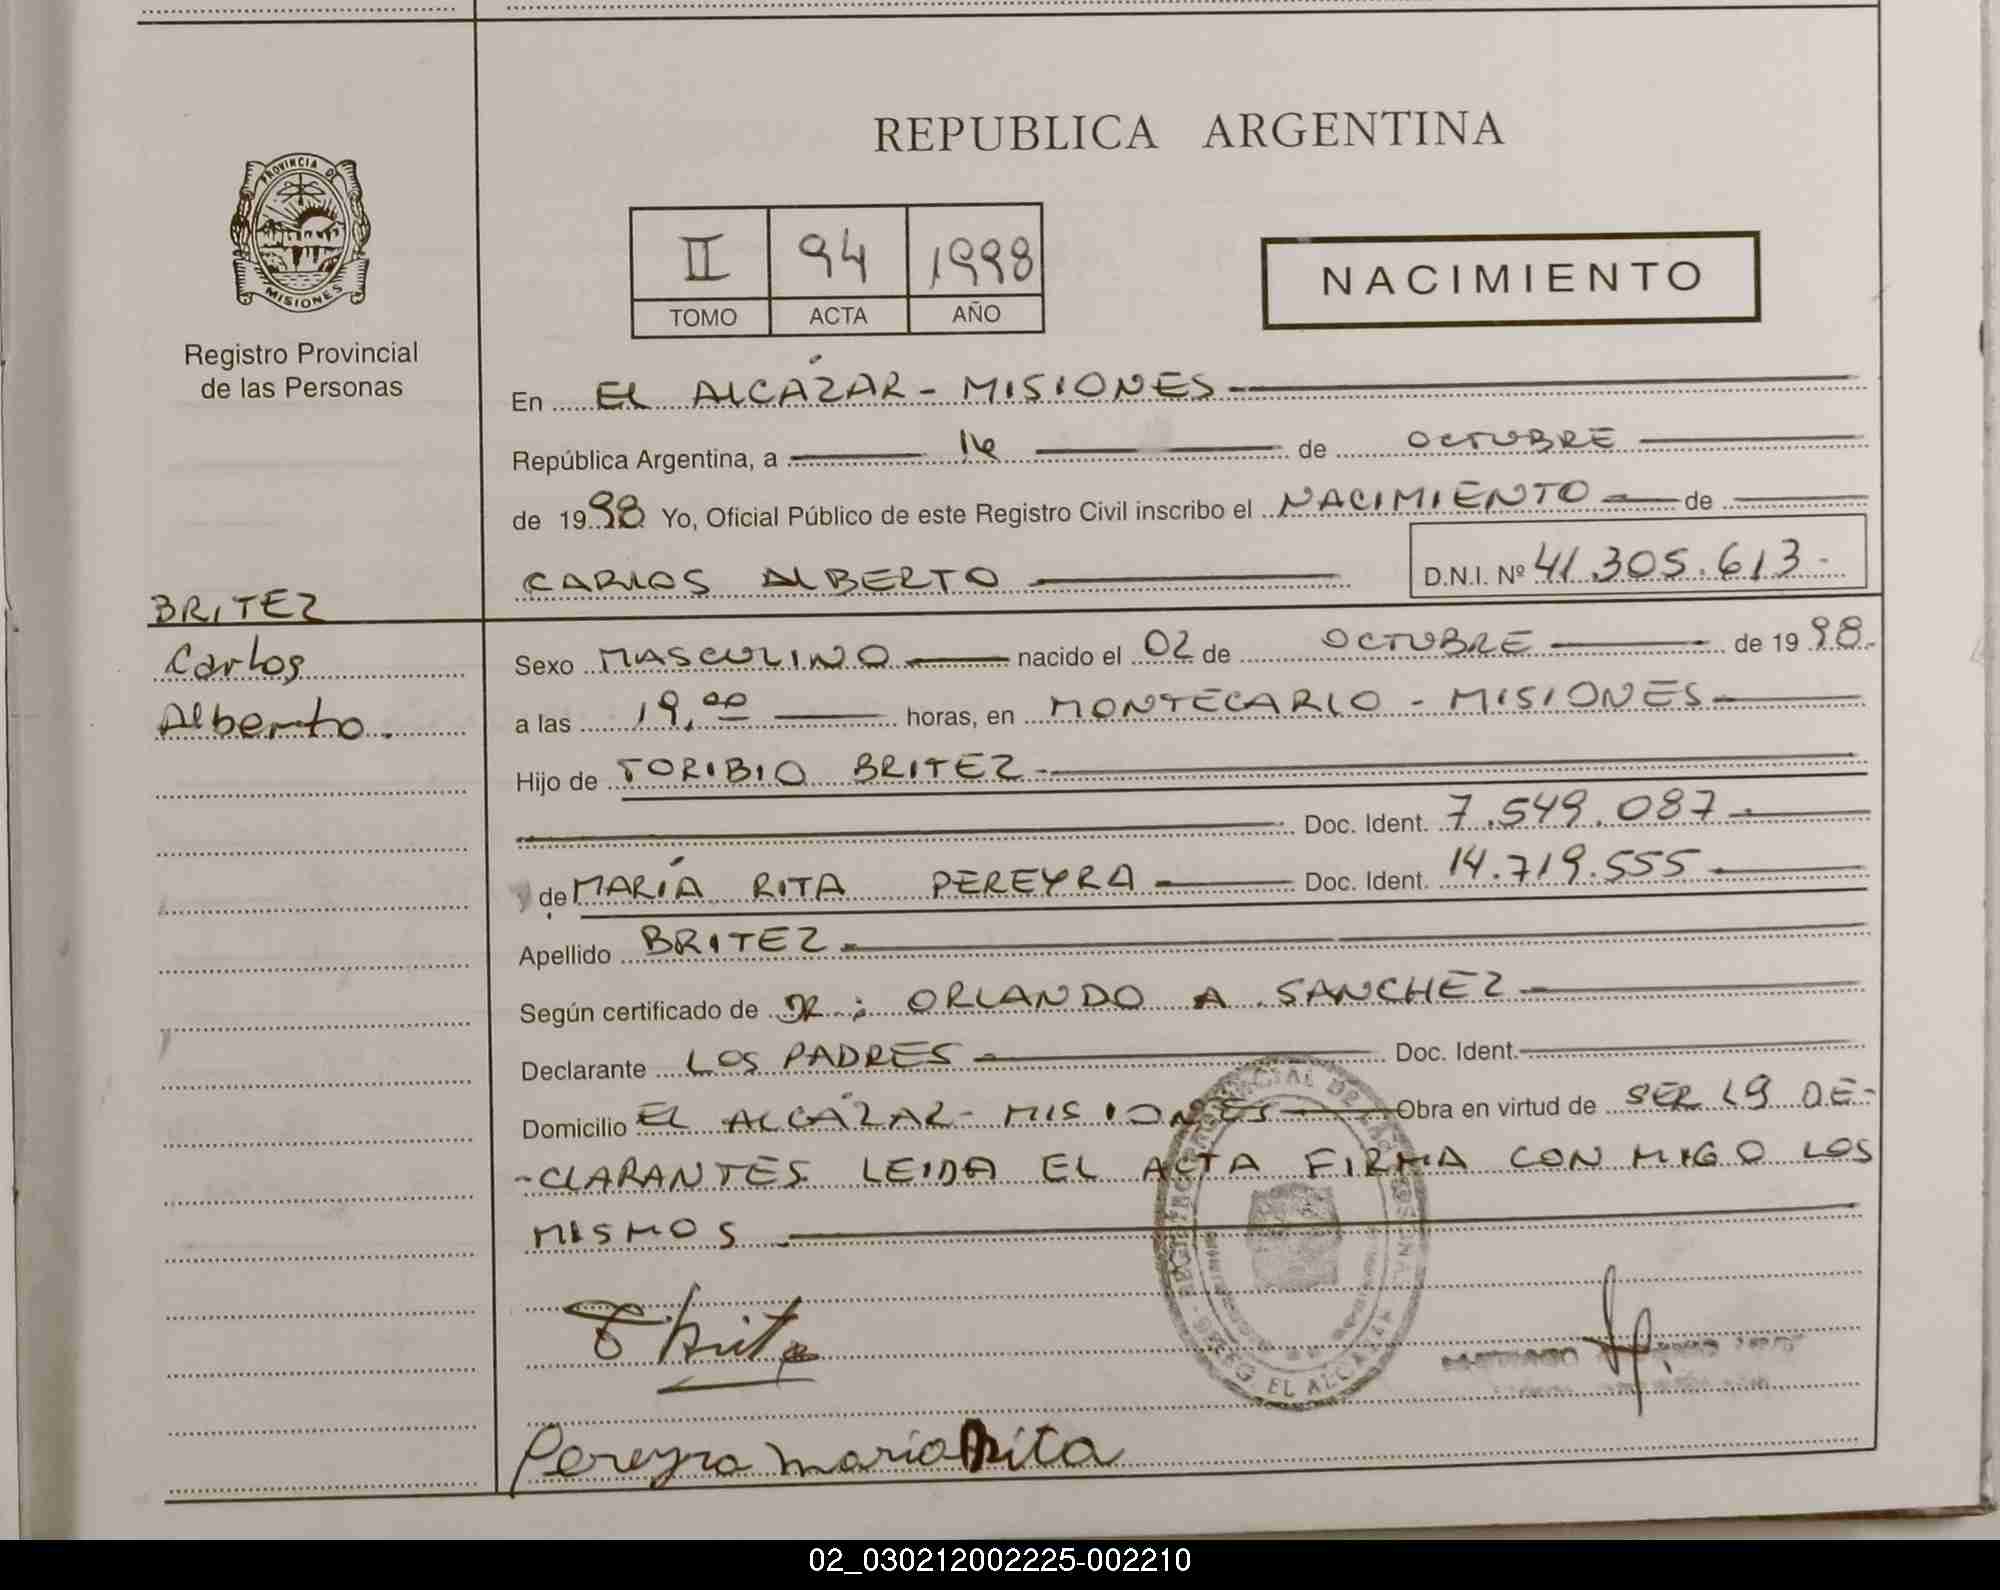 REPUBLICA ARGENTINA
PROVINCIA DE
MISIONES
Registro Provincial
de las Personas
II 94 1998
TOMO ACTA AÑO
NACIMIENTO
En EL ALCÁZAR - MISIONES
República Argentina, a 14 de OCTUBRE
de 1998 Yo, Oficial Público de este Registro Civil inscribo el NACIMIENTO de
CARLOS ALBERTO D.N.I. Nº 41.305.613.-
BRITEZ
Carlos
Alberto.
Sexo MASCULINO nacido el 02 de OCTUBRE de 1998.-
a las 19,00 horas, en MONTECARLO - MISIONES
Hijo de TORIBIO BRITEZ
Doc. Ident. 7.549.087
y de MARÍA RITA PEREYRA Doc. Ident. 14.719.555
Apellido BRITEZ
Según certificado de DR.: ORLANDO A. SANCHEZ
Declarante LOS PADRES Doc. Ident.
Domicilio EL ALCÁZAR - MISIONES Obra en virtud de SER LOS DE-
-CLARANTES LEIDA EL ACTA FIRMA CON MIGO LOS
MISMOS
REGISTRO PROVINCIAL DE LAS PERSONAS
DELEG. EL ALCAZAR
T Britez
Pereyra maria Rita
02_030212002225-002210